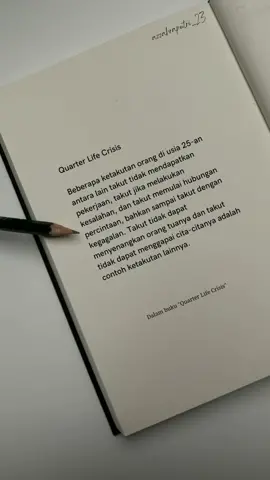 Quarter Life Crisis
Beberapa ketakutan orang di usia 25-an
antara lain takut tidak mendapatkan
pekerjaan, takut jika melakukan
kesalahan, dan takut memulai hubungan
percintaan, bahkan sampai takut dengan
kegagalan. Takut tidak dapat
menyenangkan orang tuanya dan takut
tidak dapat menggapai cita-citanya adalah
contoh ketakutan lainnya.
Dalam buku "Quarter Life Crisis"